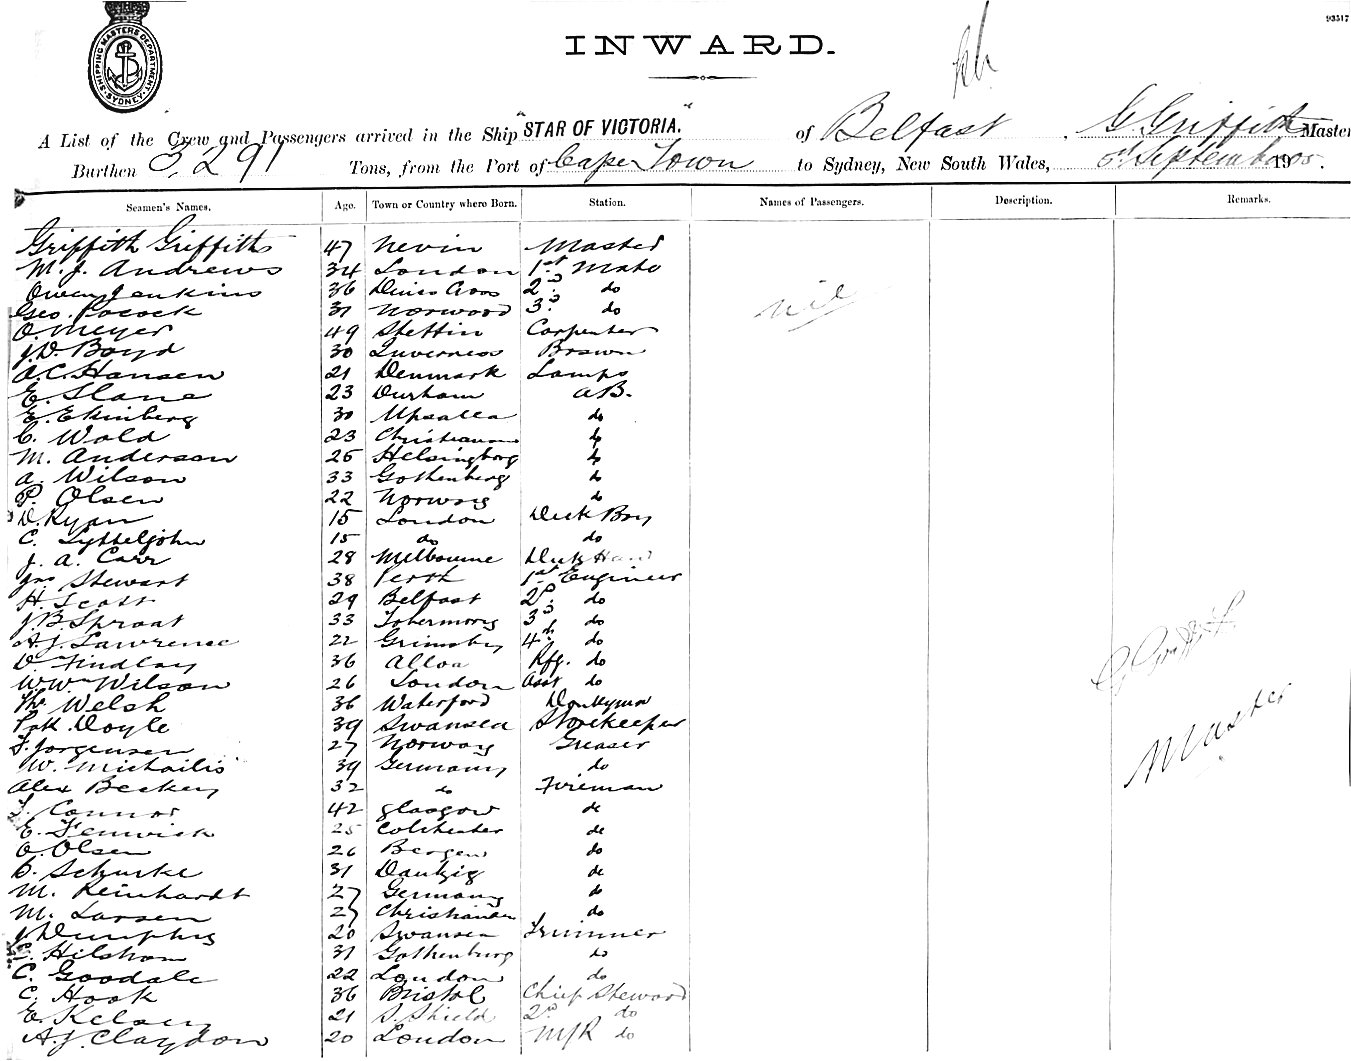 93517
SHIPPING MASTERS DEPARTMENT
SYDNEY
INWARD.
A List of the Crew and Passengers arrived in the Ship "STAR OF VICTORIA." of Belfast, G. Griffith Master
Burthen 3,291 Tons, from the Port of Cape Town to Sydney, New South Wales, September 1905.
Seamen's Names. Age. Town or Country where Born. Station. Names of Passengers. Description. Remarks.
Griffith Griffiths 47 Nevin Master
M. J. Andrews 34 London 1st Mate
Owen Jenkins 36 Cross 2nd do
Geo. Pocock 31 Norwood 3rd do
nil
O. Meyer 49 Stettin Carpenter
J. D. Boyd 30 Inverness Bosun
A. C. Hansen 21 Denmark Lamps
E. Slane 23 Durham A.B.
E. Ekinberg 30 Upsalla do
C. Wold 23 Christiania do
M. Anderson 25 Helsingborg do
A. Wilson 33 Gothenberg do
P. Olsen 22 Norway do
D. Ryan 15 London Deck Boy
C. Lytteljohn 15 do do
J. A. Carr 28 Melbourne Deck Hand
Jno Stewart 38 Perth 1st Engineer
H. Scott 29 Belfast 2nd do
J. B. Sproat 33 Tobermory 3rd do
A. J. Lawrence 22 Grimsby 4th do
D. Findlay 36 Alloa Rfg. do
Wm Wilson 26 London Asst do
Tho Welsh 36 Waterford Donkyman
Patk Doyle 39 Swansea Storekeeper
Master
F. Jorgensen 27 Norway Greaser
W. Michailis 39 Germany do
Alex Beckey 32 do Fireman
Connor 42 Glasgow do
E. Fenwick 25 Colchester do
O. Olsen 26 Bergen do
Schurke 31 Dantzig do
M. Reinhardt 27 Germany do
M. Larsen 27 do
J. Dumphy 20 Swansea Trimmer
Hilstrom 31 Gothenburg do
C. Goodale 22 London do
C. Hook 36 Bristol Chief Steward
E. Kelsey 21 S. Shield 2nd do
A. J. Claydon 20 London M/R do